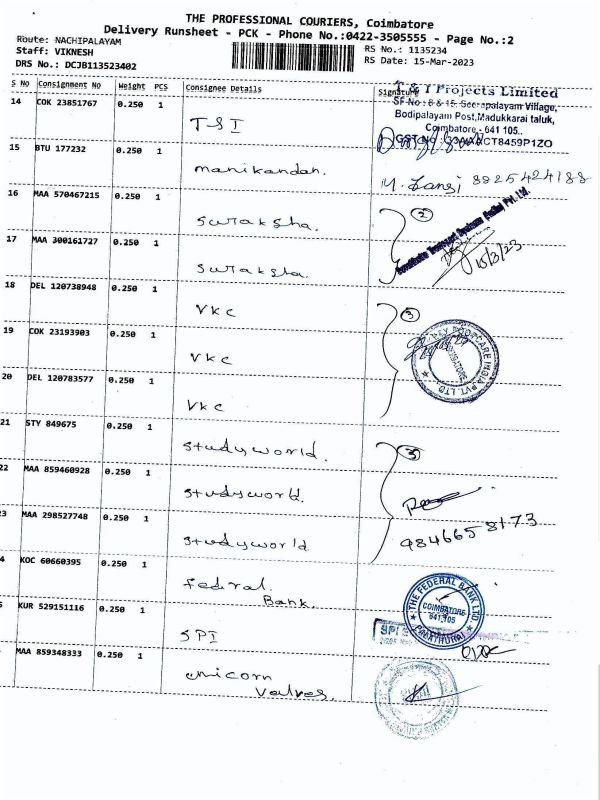 THE PROFESSIONAL COURIERS, Coimbatore
Delivery Runsheet - PCK - Phone No.:0422-3505555 - Page No.:2
Route: NACHIPALAYAM
Staff: VIKNESH
DRS No.: DCJB113523402
RS No.: 1135234
RS Date: 15-Mar-2023
S No Consignment No Weight PCS Consignee Details Signature
T & T Projects Limited
SF No : 8 & 15, Seerapalayam Village,
Bodipalayam Post, Madukkarai taluk,
Coimbatore - 641 105.
14 COK 23851767 0.250 1 TSI
15 BTU 177232 0.250 1 manikandan. 8825424188
16 MAA 570467215 0.250 1 Suraksha. 2
17 MAA 300161727 0.250 1 Suraksha. 15/3/23
18 DEL 120738948 0.250 1 VKC 3
19 COK 23193903 0.250 1 VKC
20 DEL 120783577 0.250 1 VKC
21 STY 849675 0.250 1 Studyworld. 3
22 MAA 859460928 0.250 1 Studyworld.
23 MAA 298527748 0.250 1 Studyworld 9846658173
4 KOC 60660395 0.250 1 federal Bank.
THE FEDERAL BANK LTD.
COIMBATORE
641 105
5 KUR 529151116 0.250 1 SPI
SPI
MAA 859348333 0.250 1 unicorn
Valves.